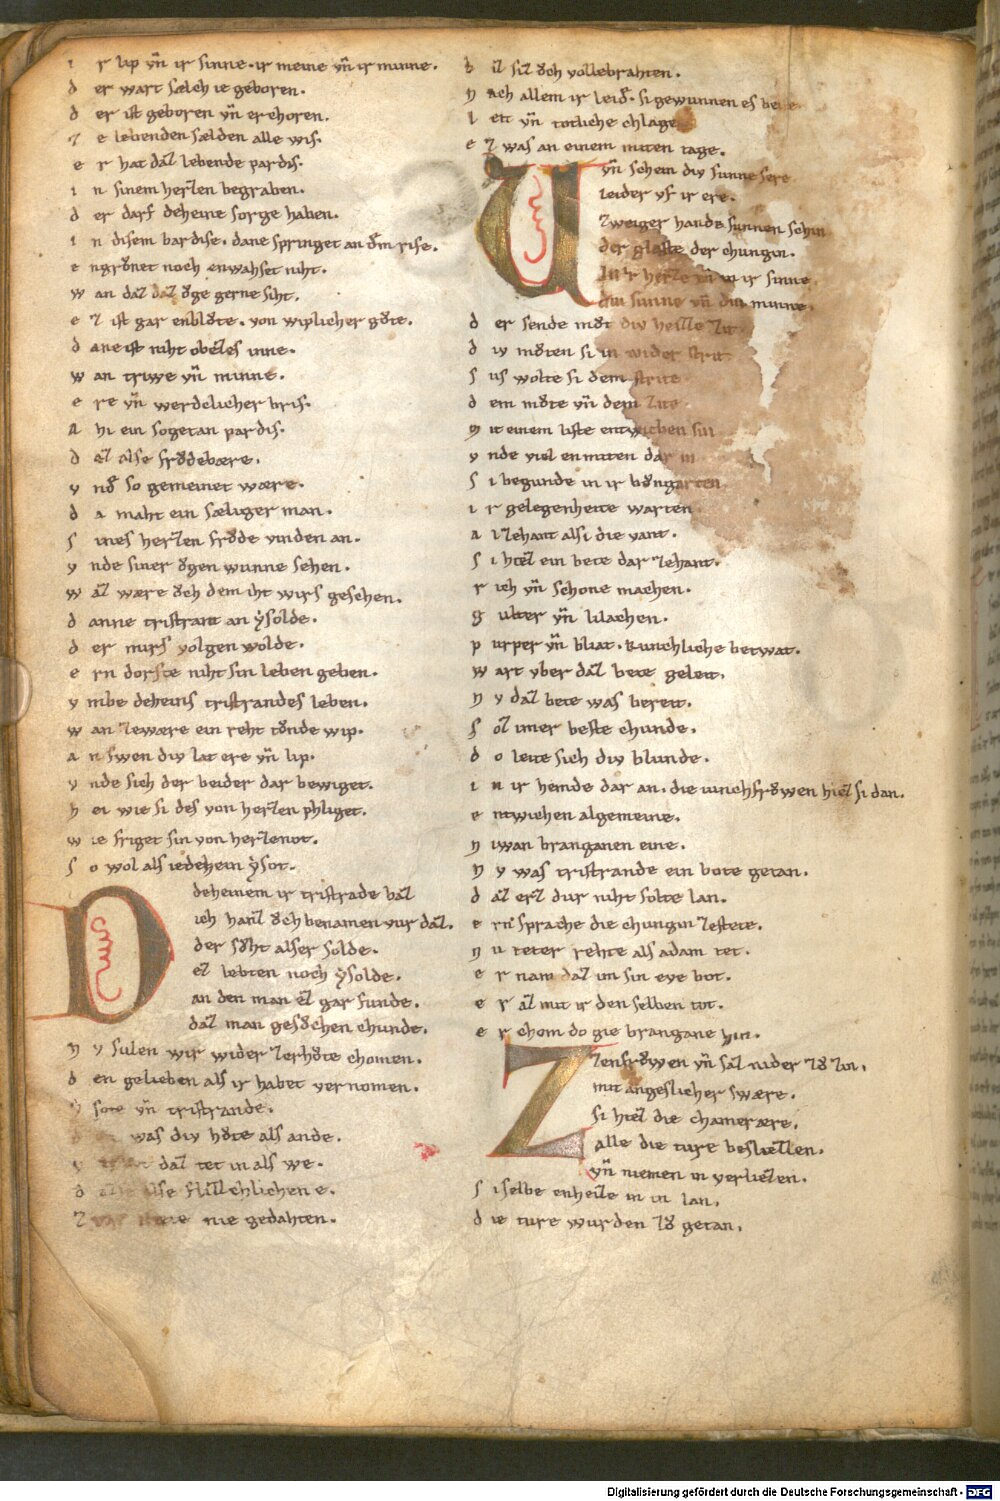 i r lip vn̄ ir sinne · ir meine vn̄ ir minne .
d er wart sælch ie geboren .
d er ist geboren vn̄ erchoren .
z e lebenden sælden alle wis .
e r hat daz lebende pardis .
i n sinem herzen begraben .
d er darf deheine sorge haben .
i n disem bardise . dane springet an dem rise .
e ngrůnet noch enwahset niht .
w an daz daz ǒge gerne siht .
e z ist gar enblǒte . von wiplicher gǒte .
d ane ist niht obezes inne .
w an triwe vn̄ minne .
e re vn̄ werdelicher bris .
a hi ein sogetan pardis .
d ez alse frǒdebære .
v nd̕ so gemeinet wære .
d a maht ein sæliger man .
s ines herzen frǒde vinden an .
v nde siner ǒgen wunne sehen .
w az wære ǒch dem iht wirs geschen .
d anne tristrant an ẏsolde .
d er mirs volgen wolde .
e rn dorfte niht sin leben geben .
v mbe deheins tristrandes leben .
w an zeware ein reht tǒnde wip .
a n swen div lat ere vn̄ lip .
v nde sich der beider dar bewiget .
h ei wie si des von herzen phliget .
w ie friget sin von herzenot .
s o wol als iedehein ẏsot .
D deheinem ir tristrade baz
ich hanz ǒch benamen vur daz .
der sǒht alser solde .
ez lebten noch ẏsolde .
an den man ez gar funde .
daz man gesǒchen chunde .
n v sulen wir wider zerhǒte chomen .
d en gelieben als ir habet vernomen .
ẏ sote vn̄ tristrande .
was div hǒte als ande .
daz tet in als we .
d alse flizzchlichen e .
z nie gedahten .
b iz siz ǒch vollebrahten .
n ach allem ir leid̕ . si gewunnen es
l ett vn̄ totliche chlage
e z was an einem mitten tage .
U vn̄ schein div sunne sere
leider vf ir ere .
zweiger hande sunnen schin
der glaste der chungin .
In ir herze vn̄ in ir sinne
div sunne vn̄ div minne .
d er sende mǒt div heizze zit
d iv mǒten si in wider strit
s us wolte si dem strite
d em mǒte vn̄ dem zite
m it einem liste entwichen sin
v nde viel enmitten dar in
s i begunde in ir bǒngarten
i r gelegenheite warten
a lzehant alsi die vant .
s i hiez ein bete dar zehant .
r ich vn̄ schone machen .
g ulter vn̄ lilachen .
p urper vn̄ bliat . kunchliche betwat .
w art vber daz bete geleit .
n v daz bete was bereit .
s oz imer beste chunde .
d o leite sich div blunde .
i n ir hemde dar an . die iunchfrǒwen hiez si dan .
e ntwichen algemeine .
n iwan branganen eine .
n v was tristrande ein bote getan .
d az erz dur niht solte lan .
e rn sprache die chungin zestete .
n u teter rehte als adam tet .
e r nam daz im sin eve bot .
e r az mit ir den selben tot .
e r chom do gie brangane hin .
Z zenfrǒwen vn̄ saz nider zǒ zin .
mit angeslicher swære .
si hiez die chamerære .
alle die ture besliezzen .
vn̄ niemen in verliezen .
s iselbe enheize in in lan .
d ie ture wurden zǒ getan .
Digitalisierung gefördert durch die Deutsche Forschungsgemeinschaft - DFG